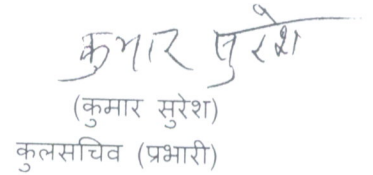 कुमार सुरेश
(कुमार सुरेश)
कुलसचिव (प्रभारी)